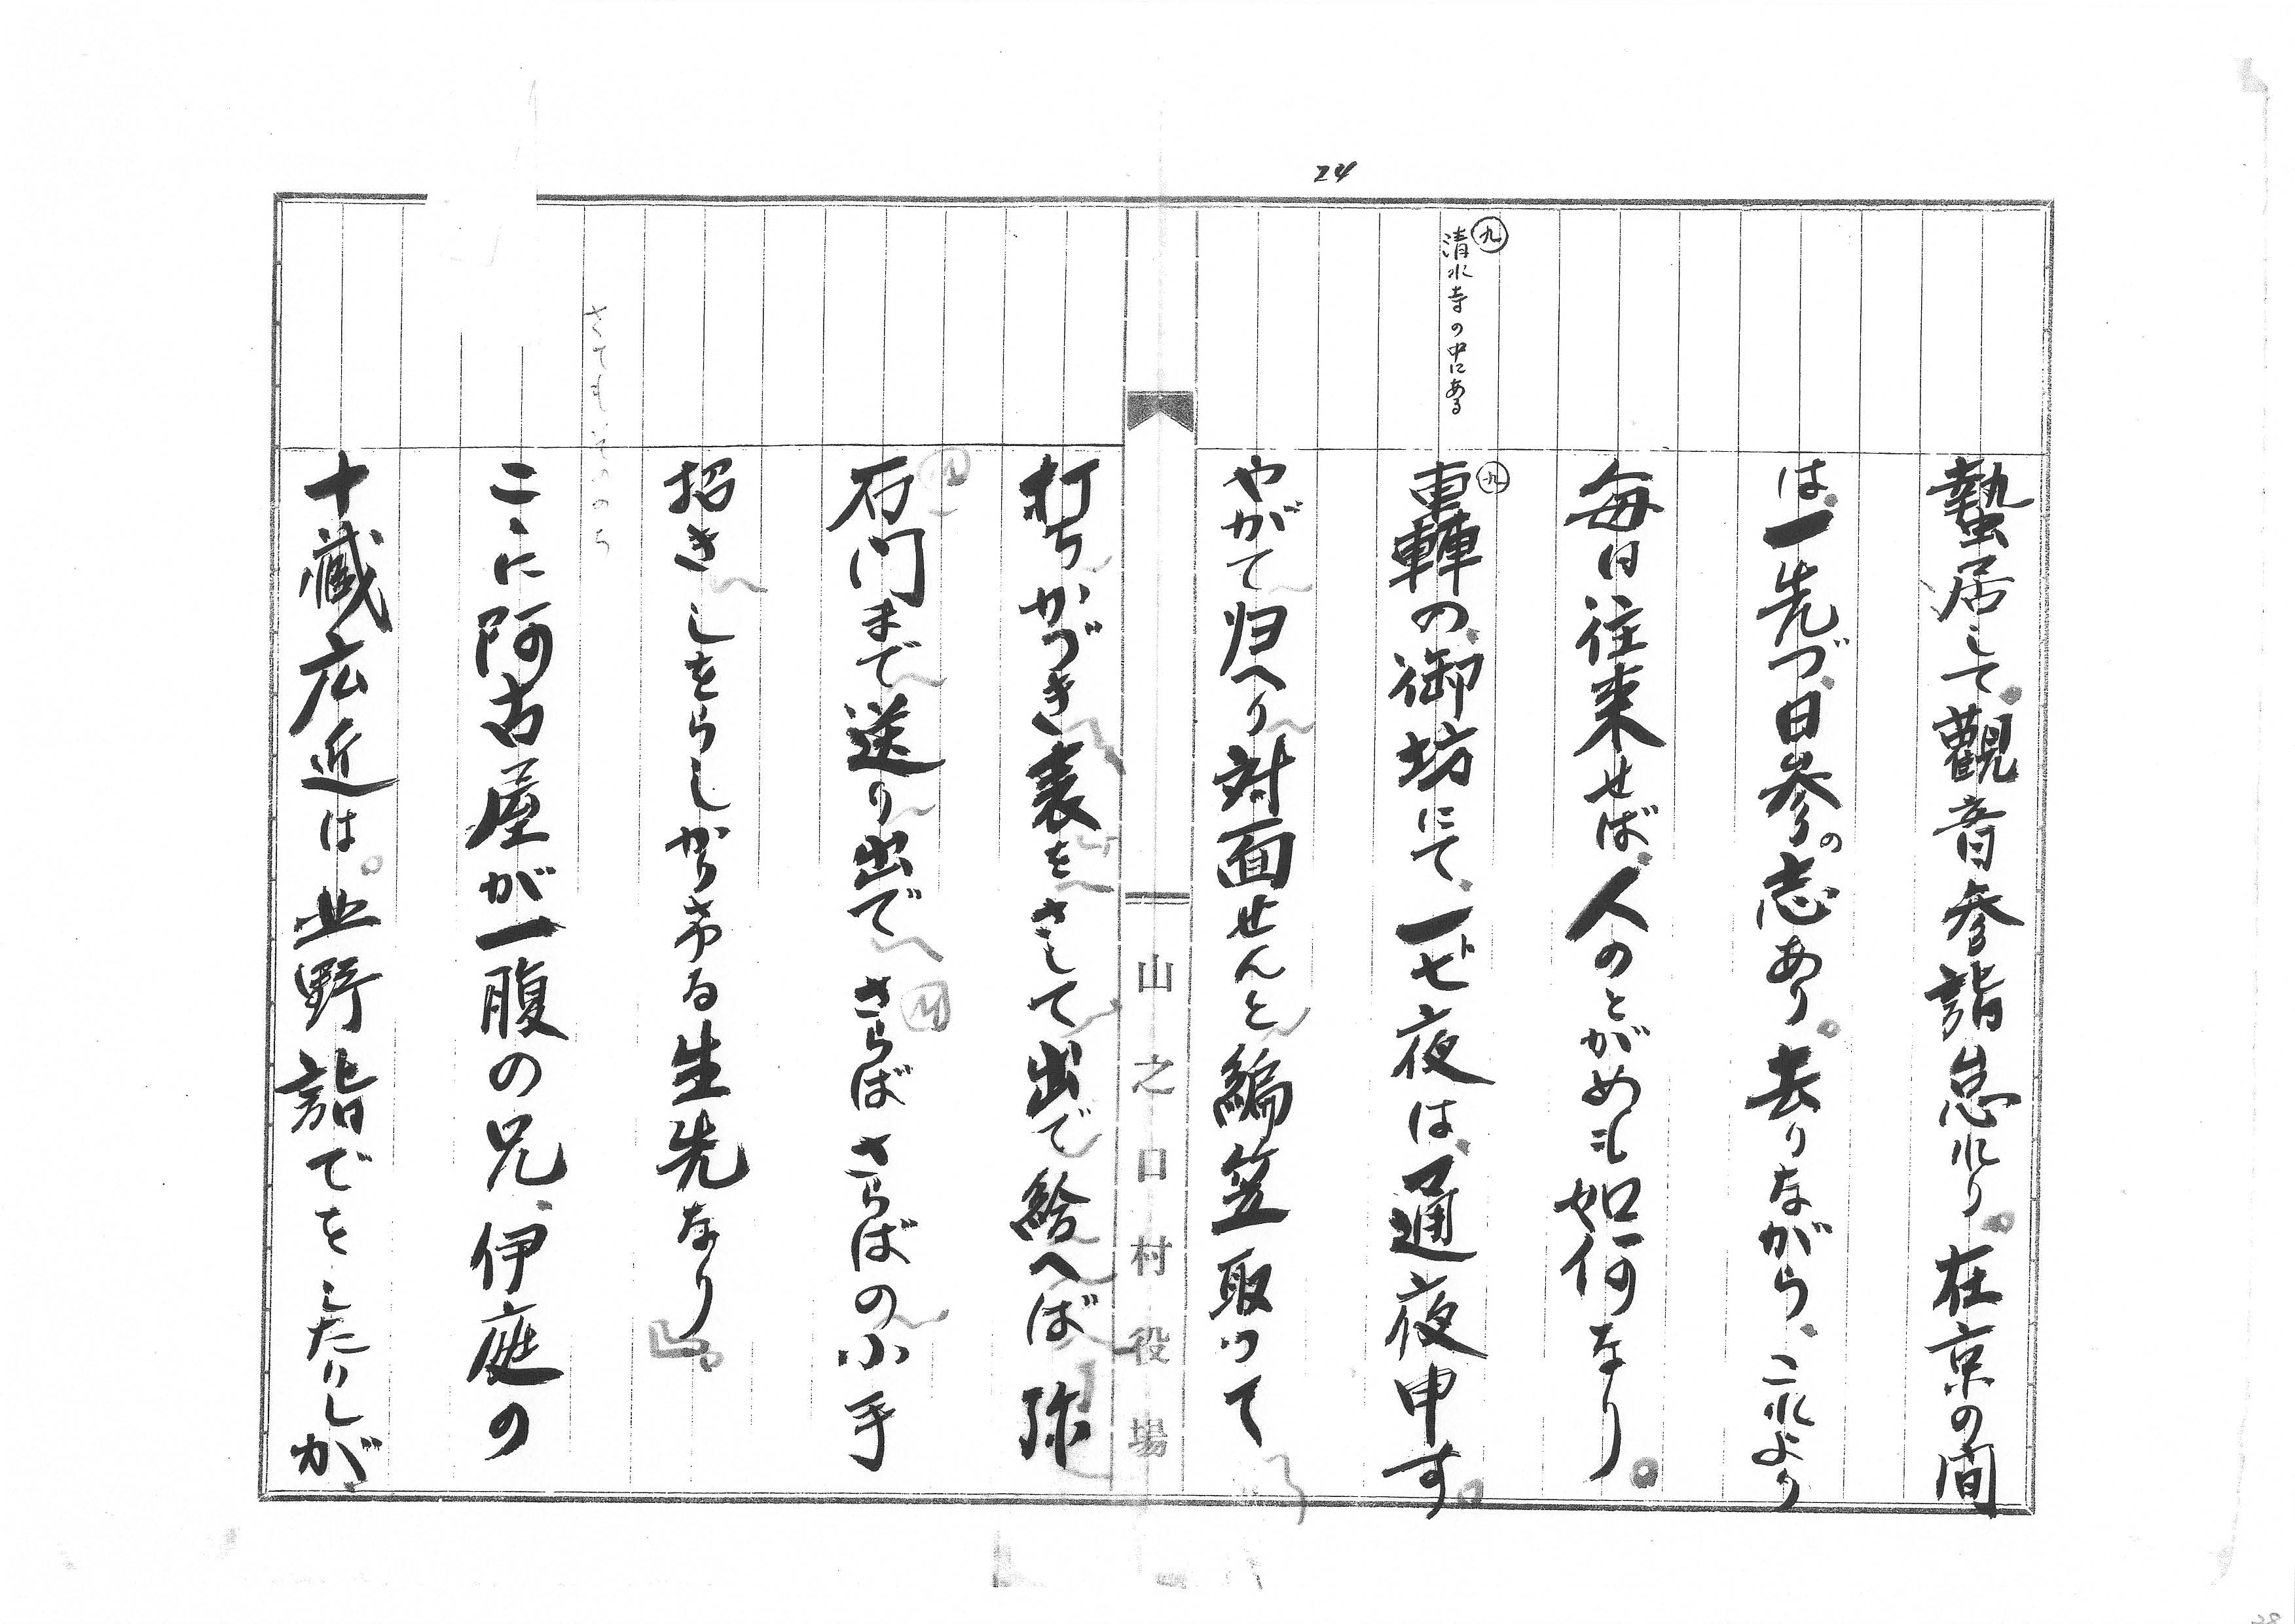 24
蟄居して、觀音参詣怠れり。在京の間
は、一先づ、日参の志あり。去りながら、これより
毎日往来せば、人のとがめも如何なり。
㊈
清水寺の中にある
㊈
轟の、御坊にて、一ト七夜は、通夜申す。
やがて帰へり対面せんと編笠取って
山之口村役場
打ちかづき裏をさして出で給へば 弥
石門まで送り出で さらば さらばの小手
招きしをらしかりける生先なり』。
さてもそののち
こゝに阿古屋が一腹の兄、伊庭の
十蔵広近は。北野詣でをしたりしが、